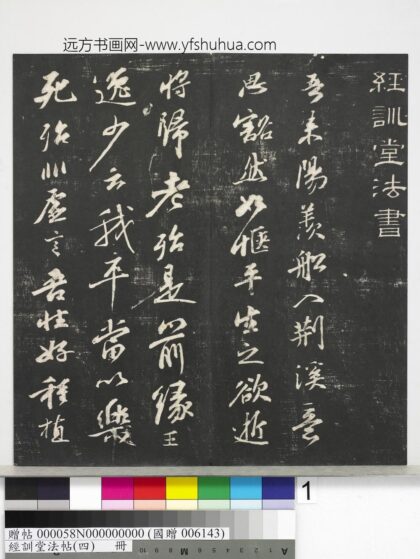 远方书画网-www.yfshuhua.com
經訓堂法書
吾来陽羨船入荆溪意
思豁然如惬平生之欲逝
将歸老殆是前緣王
逸少云我卒當以樂
死殆非虚言吾性好種植
1
贈帖 000058N000000000 (國贈 006143)
經訓堂法帖(四) 冊